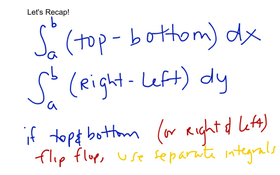 Let's Recap!
∫_a^b (top - bottom) dx
∫_a^b (right - left) dy
if top & bottom (or right & left)
flip flop, use separate integrals